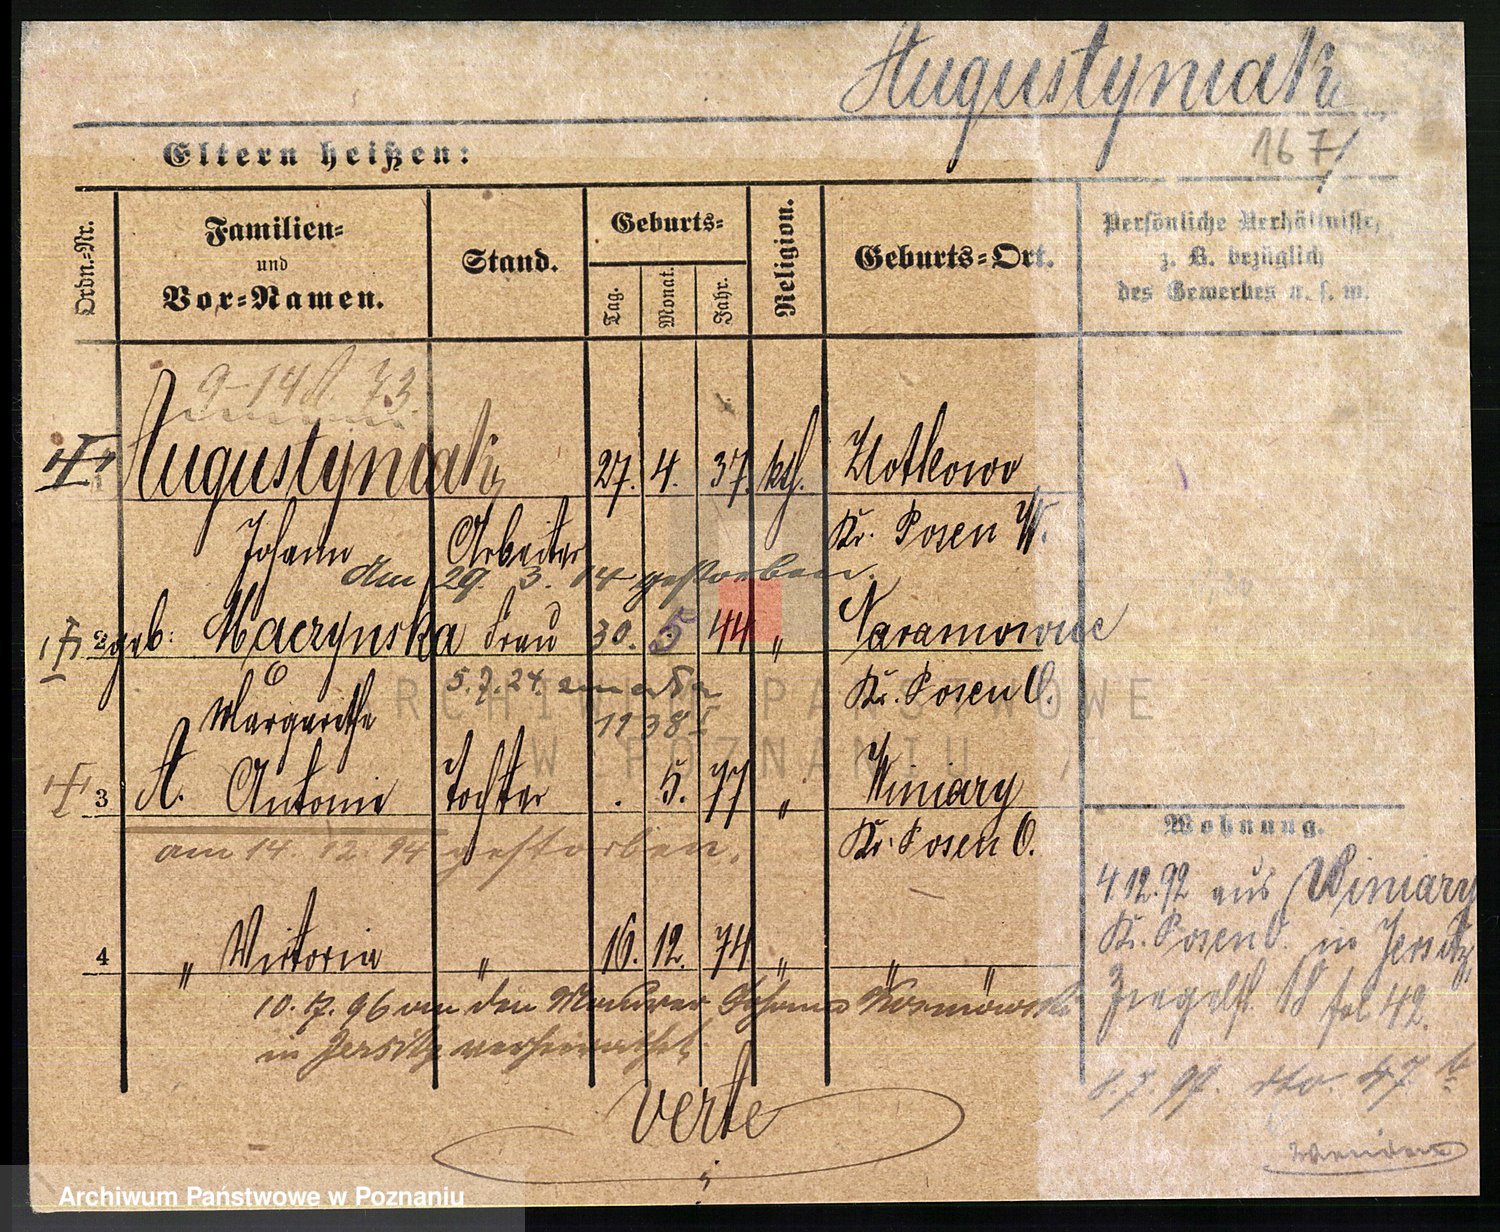 Augustyniak
167
Eltern heißen:
Ordn.-Nr.
Familien-
und
Vor-Namen.
Stand.
Geburts-
Tag.
Monat.
Jahr.
Religion.
Geburts-Ort.
Persönliche Verhältnisse,
z. B. bezüglich
des Gewerbes u. s. w.
Augustyniak 27. 4. 37. kth.
Johann Arbeiter Kr. Posen W.
am 29. 3. 14 gestorben.
2 geb: Maczynska Frau 30. 5 44 " Naramowice
Margarethe Kr. Posen O.
5.7.24.
3 A. Antonie Tochter . 5. 77 " Winiary
am 14. 12. 94 gestorben. Kr. Posen O.
4 " Victoria " 16. 12. 74 " " "
10. 7. 96 an den Maurer Johann
in Jersitz verheirathet
verte
Wohnung.
4 12. 92 aus Winiary
Kr. Posen O. in Jersitz
Ziegelst. 18 fol 42.
8. 7. 97. dto. 47
ARCHIWUM PAŃSTWOWE
W POZNANIU
Archiwum Państwowe w Poznaniu